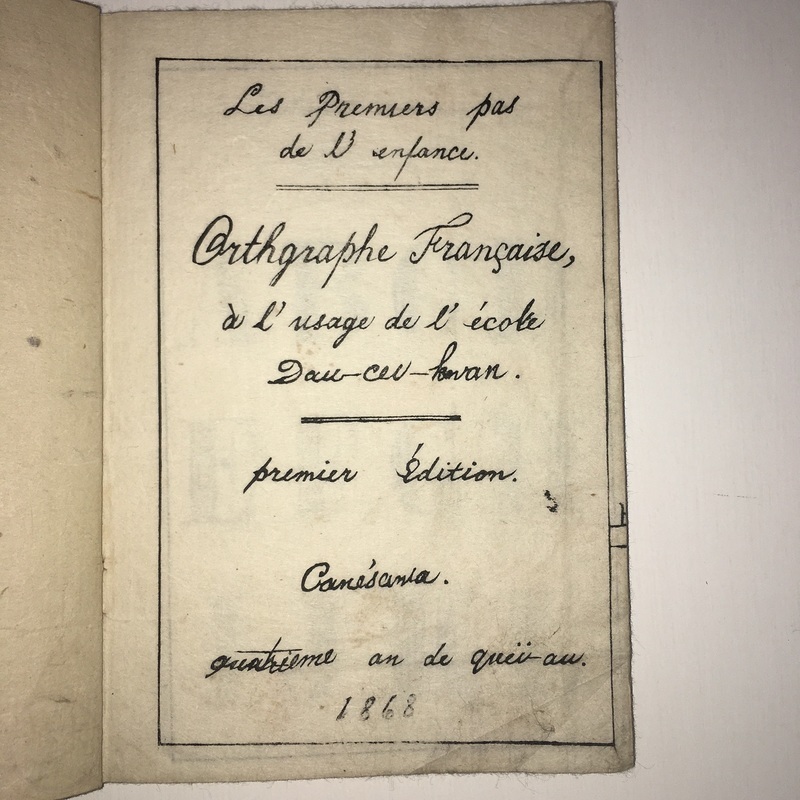 Les Premiers pas
de l' enfance.
Orthgraphe Française,
à l' usage de l' école
Dau-ceu-kwan.
premier Édition.
Canésawa.
quatrieme an de queï-au.
1868